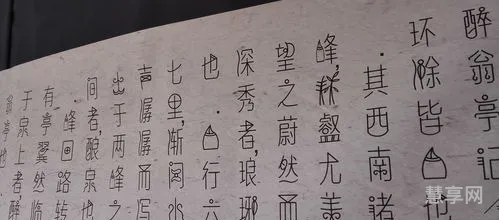 醉翁亭记
环滁皆山也
.其西南诸
峰,林壑尤美
望之蔚然而
深秀者,琅琊
也.山行六
七里,渐闻水
声潺潺而泻
出于两峰之
间者,酿泉也
.峰回路转
有亭翼然临
于泉上者醉
翁亭也
慧享网